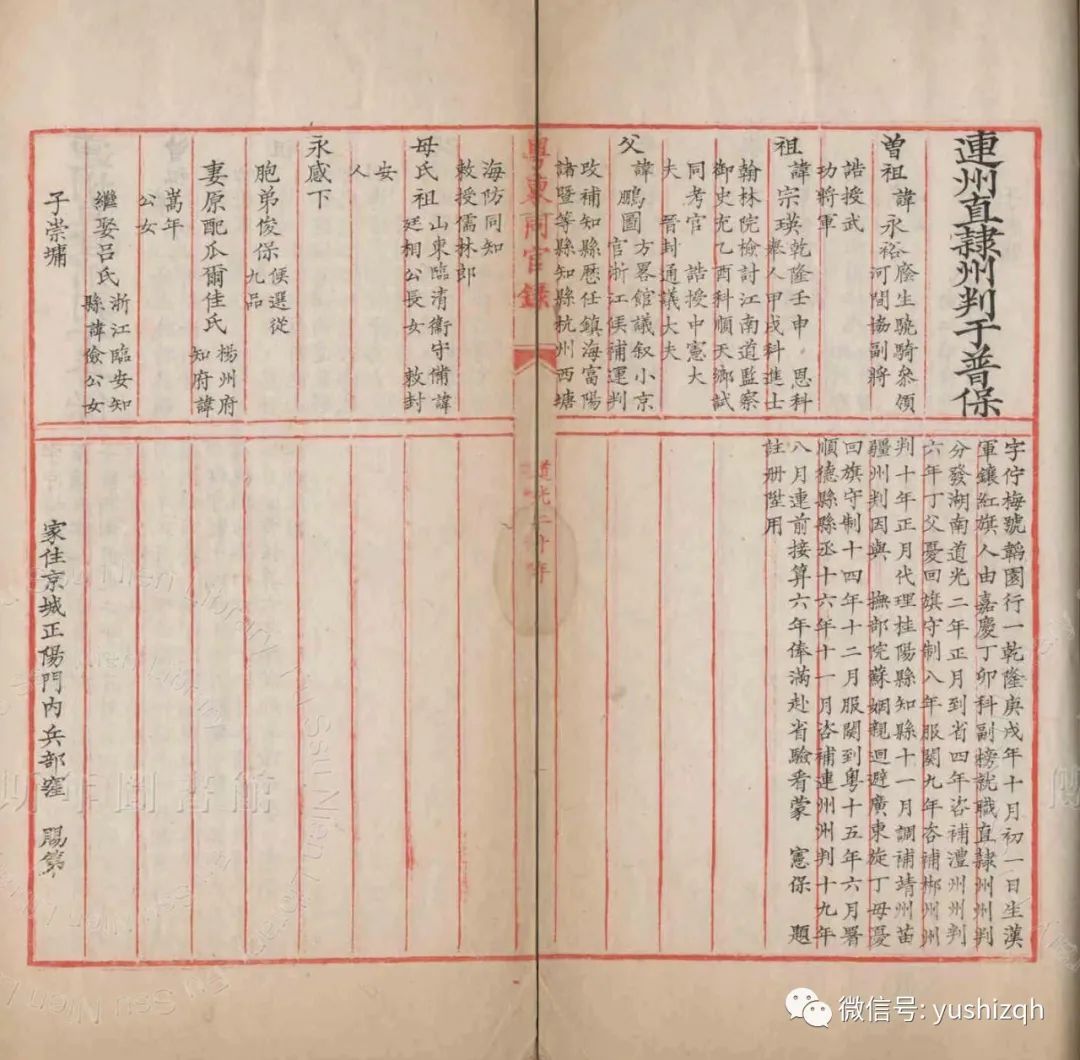 連州直隸州判于普保
曾祖 諱永裕 廕生驍騎參領
河間協副將
誥授武
功將軍
祖 諱宗瑛 乾隆壬申 恩科
舉人甲戌科進士
翰林院檢討江南道監察
御史充乙酉科順天鄉試
同考官 誥授中憲大
夫 晉封通議大夫
父 諱鵬圖 方畧館議叙小京
官浙江候補運判
改補知縣歷任鎮海富陽
諸暨等縣知縣杭州西塘
海防同知
敕授儒林郎
母氏祖 山東臨清衞守備諱
廷相公長女 敕封
安
人
永感下
胞弟俊保 候選從
九品
妻原配瓜爾佳氏 楊州府
知府諱
嵩年
公女
繼娶呂氏 浙江臨安知
縣諱儉公女
子崇墉
字佇梅號韜園行一乾隆庚戌年十月初一日生漢
軍鑲紅旗人由嘉慶丁卯科副榜就職直隸州州判
分發湖南道光二年正月到省四年咨補澧州州判
六年丁父憂回旗守制八年服闋九年咨補郴州州
判十年正月代理桂陽縣知縣十一月調補靖州苗
疆州判因與 撫部院蘇姻親迴避廣東旋丁母憂
回旗守制十四年十二月服闋到粵十五年六月署
順德縣縣丞十六年十一月咨補連州洲判十九年
八月連前接算六年俸滿赴省驗看蒙 憲保 題
註册陞用
家住京城正陽門內兵部窪 賜第
粵東同官錄
道光二十年
微信号: yushizqh